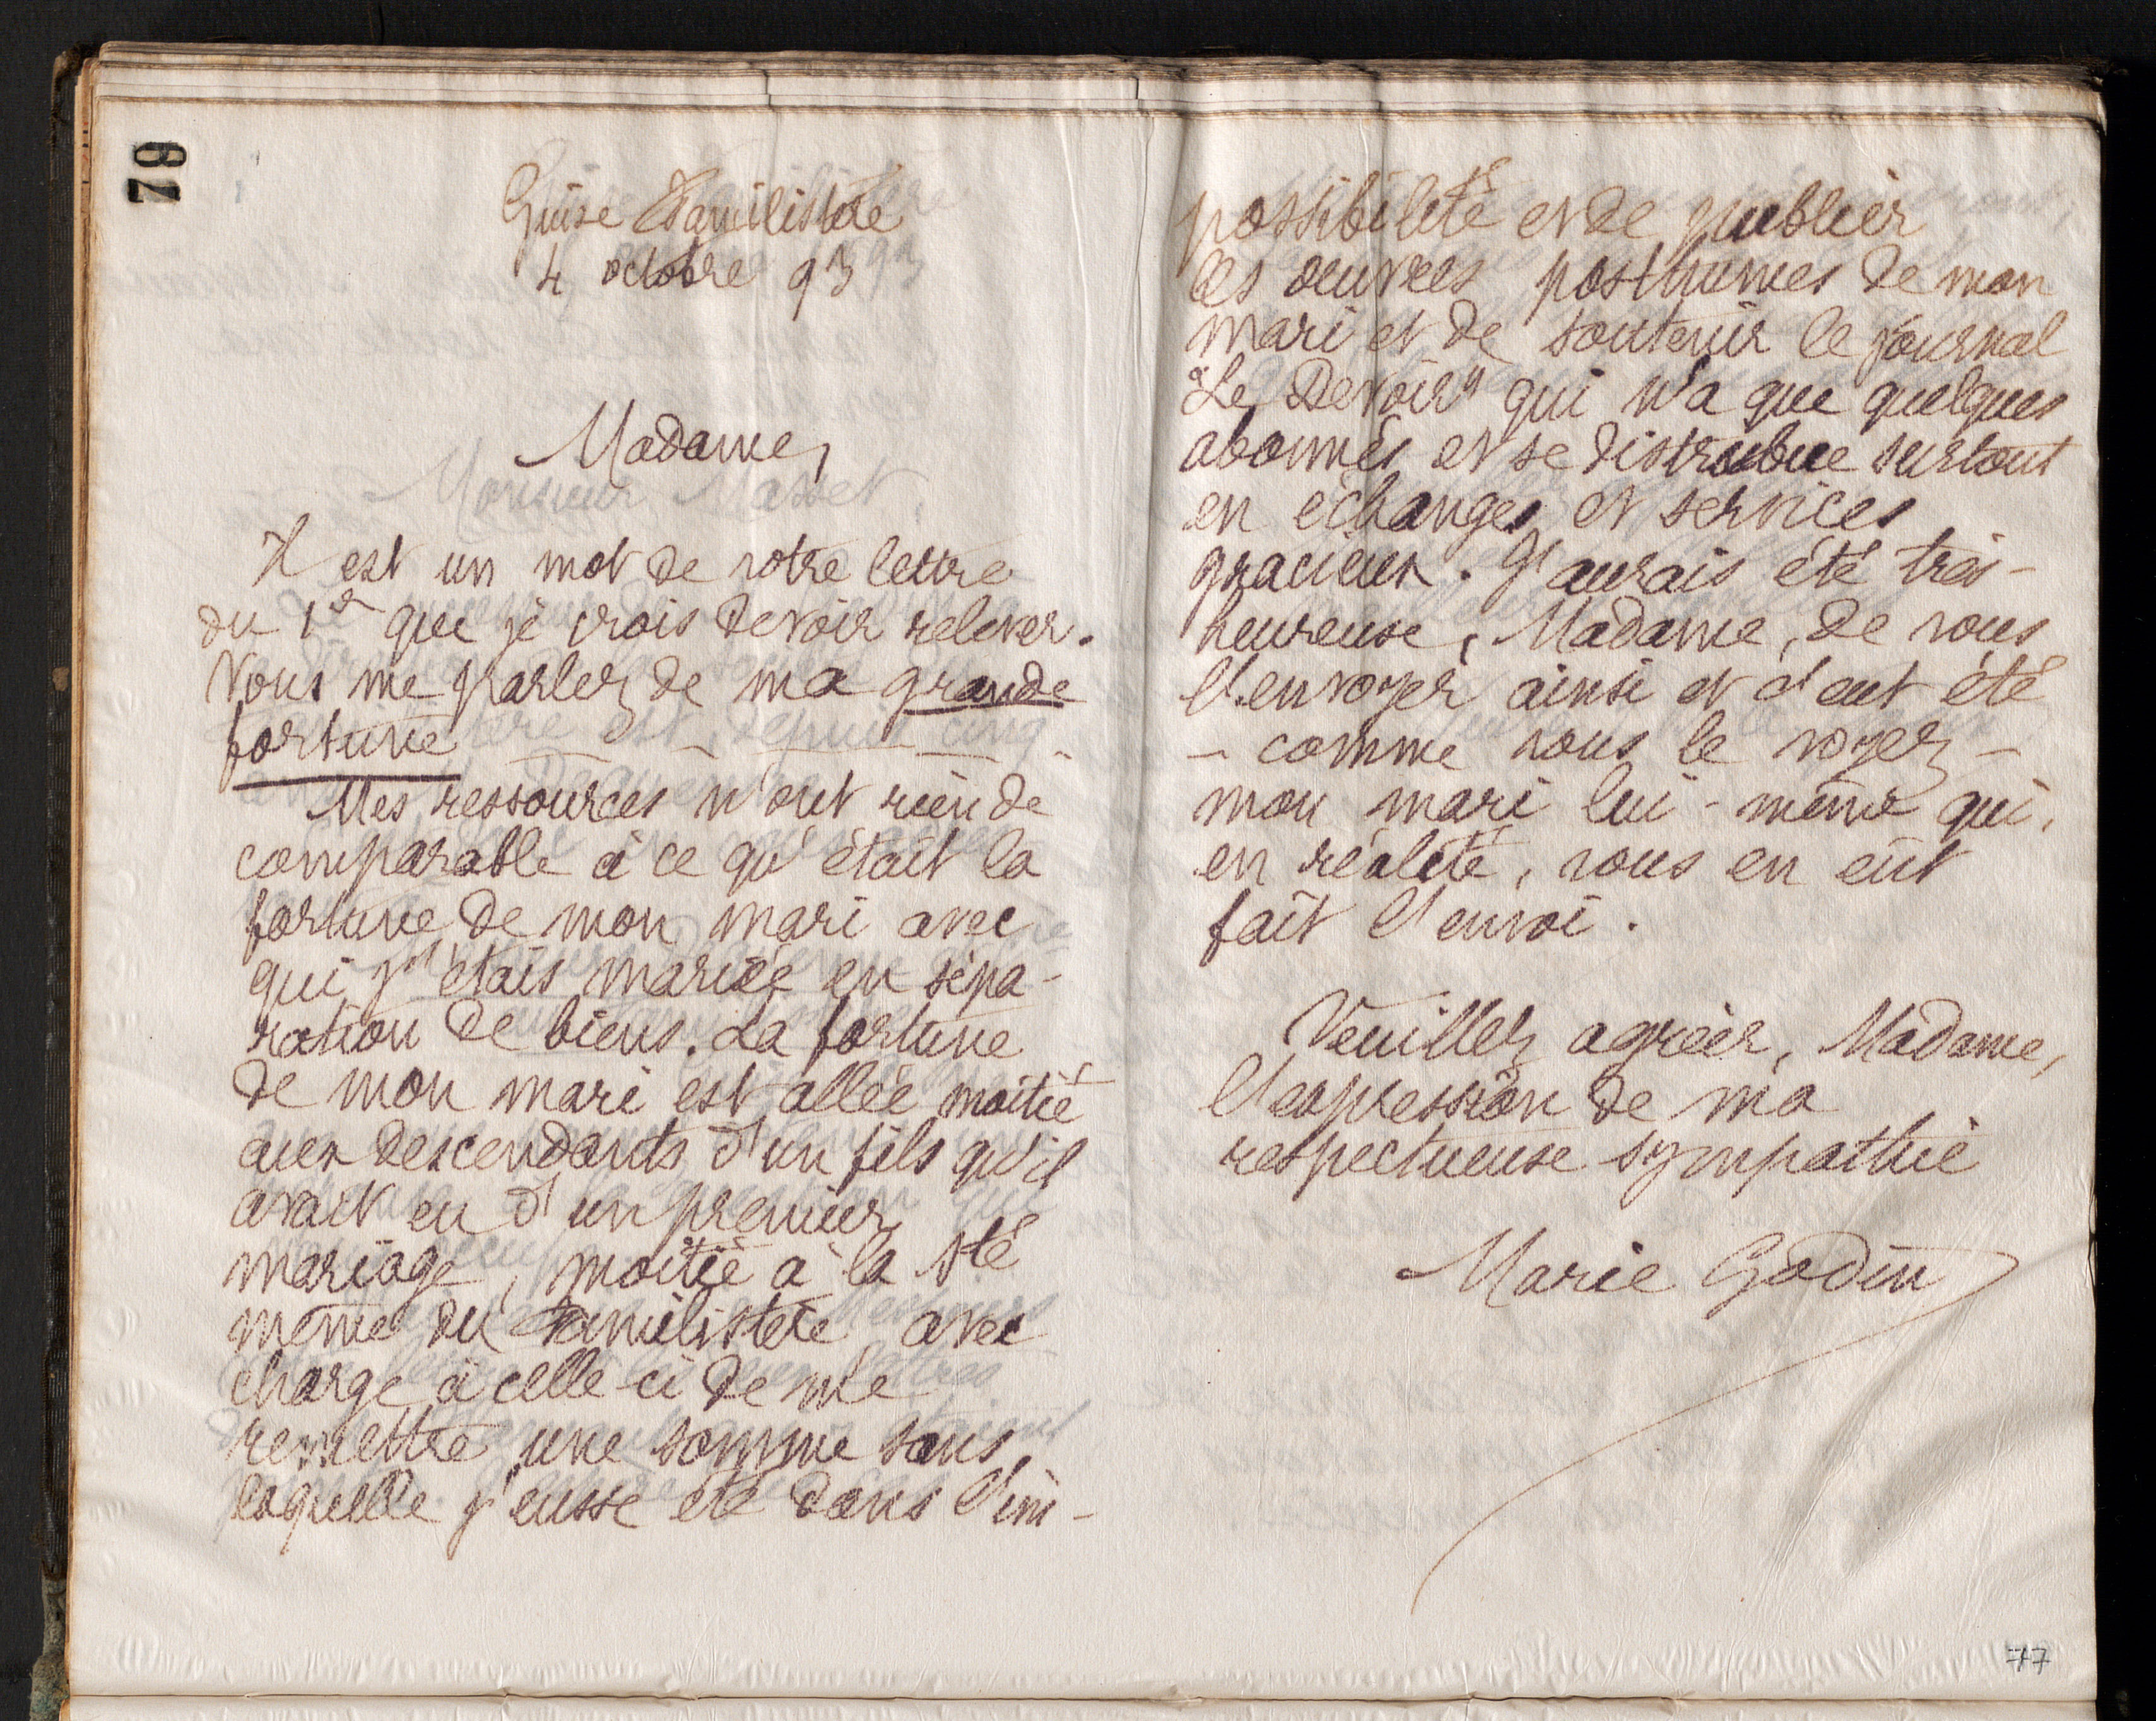 79
Guise Familistère
4 octobre 93
Madame,
Il est un mot de votre lettre
du 1er que je crois devoir relever.
Vous me parlez de ma grande
fortune
Mes ressources n'ont rien de
comparable à ce qu'était la
fortune de mon mari avec
qui j'étais mariée en sépa-
ration de biens. La fortune
de mon mari est allée moitié
aux descendants d'un fils qu'il
avait eu d'un premier
mariage, moitié à la Sté
même du Familistère avec
charge à celle-ci de me
remettre une somme sans
laquelle j'eusse été dans l'im-
possibilité et de publier
les œuvres posthumes de mon
mari et de soutenir le journal
"Le Devoir" qui n'a que quelques
abonnés et se distribue surtout
en échanges et services
gracieux. J'aurais été très-
heureuse, Madame, de vous
l'envoyer ainsi et c'eut été
- comme vous le voyez -
mon mari lui-même qui,
en réalité, vous en eût
fait l'envoi.
Veuillez agréer, Madame,
l'expression de ma
respectueuse sympathie
Marie Godin